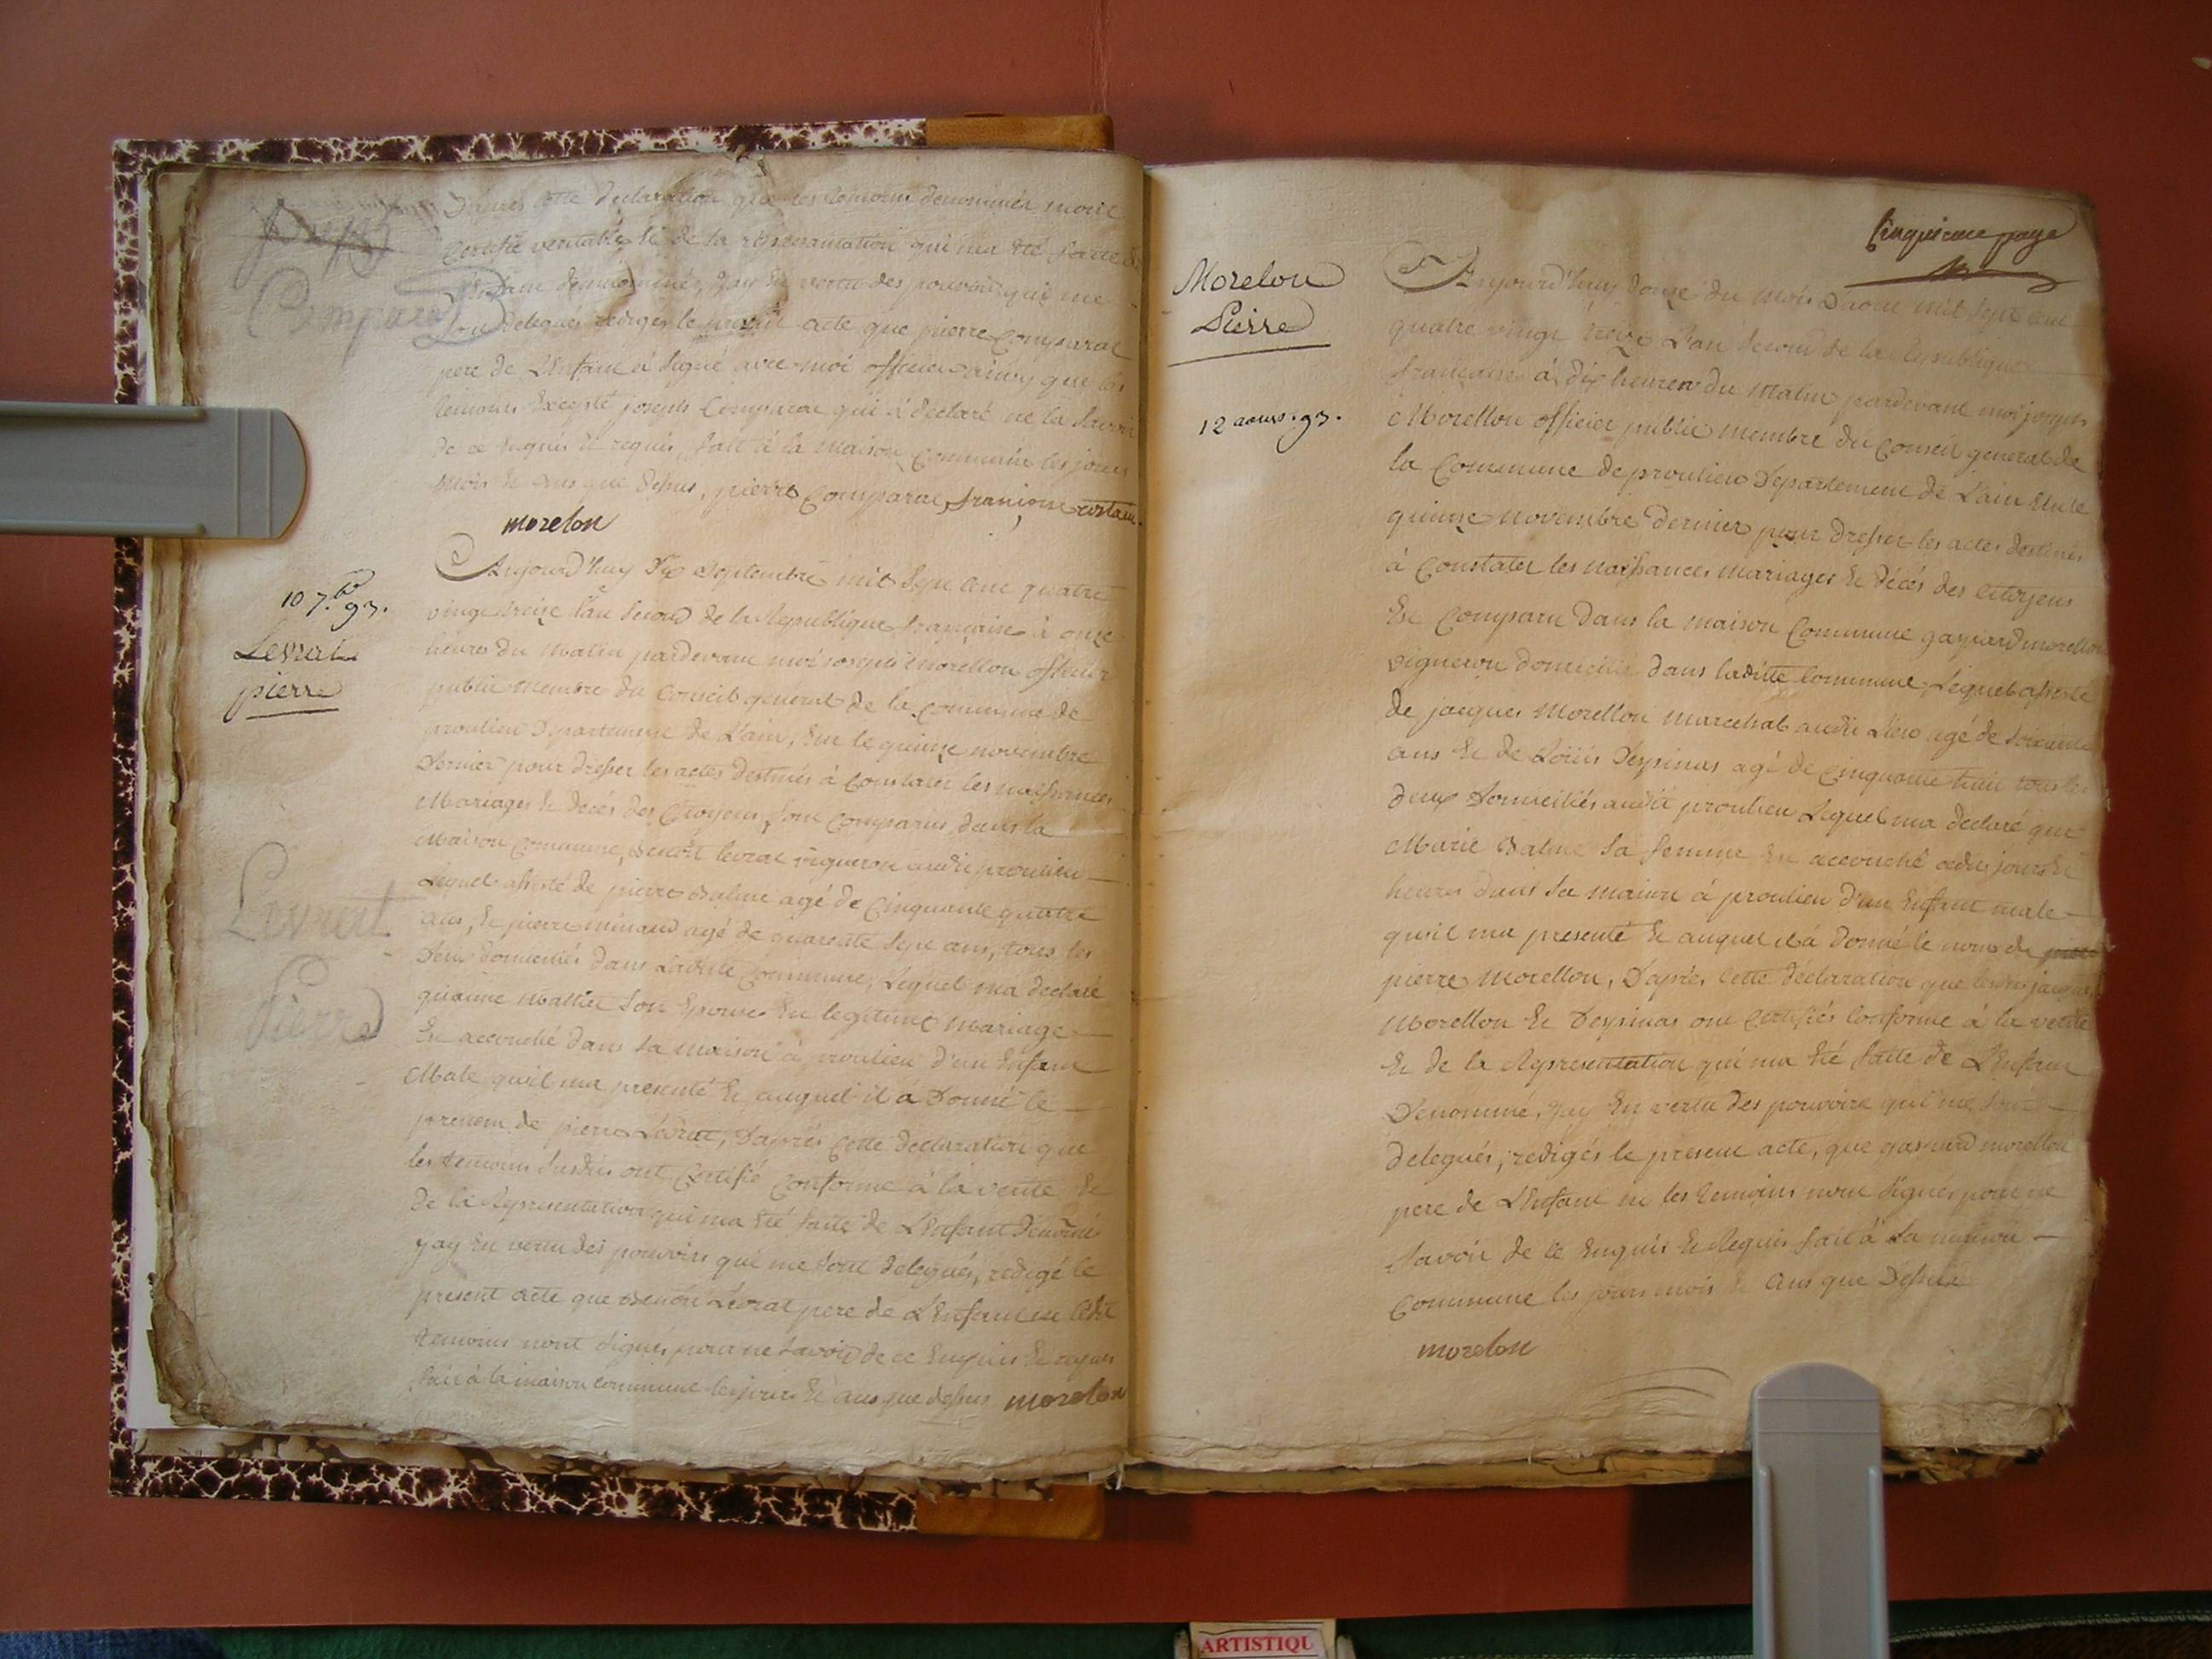 D'apres cette declaration que les temoins denommés mont
certifié veritable & de la representation qui ma été faite de
L'Enfant denommé, jay en vertu des pouvoirs qui me
sont delegués redigés le present acte que pierre Comparat
pere de L'Enfant à signé avec moi officier ainsy que les
temoins Excepté joseph Comparat qui à declaré ne la savoir
de ce enquis & requis, fait à la maison Commune les jours
mois & ans que dessus, pierre Comparat françoise
morelon
Comparat
10 7.bre 93.
Levrat
pierre
Aujourd'huy dix Septembre mil Sept cent quatre
vingt treize l'an Second de la Republique française à onze
heures du Matin pardevant moi joseph Morellon officier
public Membre du Conseil general de la Commune de
proulieu Departement de L'ain, Elu le quinze novembre
Dernier pour dresser les actes destinés à Constater les naissances
Mariages & decés des Citoyens, Sont Comparus dans la
Maison Commune, Benoit levrat vigneron audit proulieu
Lequel assisté de pierre Balme agé de Cinquante quatre
ans, & pierre minaud agé de quarente Sept ans, tous les
deux domiciliés dans Ladite Commune, Lequel ma declaré
qu'anne Mallet Son Epouse En legitime Mariage
Est accouché dans sa maison à proulieu d'un Enfant
Male quil ma presenté & auquel il à Donné le
prenom de pierre Levrat, D'aprés Cette declaration que
les temoins Susdits ont Certifié Conforme à la verite &
de la Representation qui ma été faite de L'Enfant denommé
jay En vertu des pouvoirs qui me Sont delegués, redigé le
présent acte que Benoit Levrat pere de L'Enfant ni Lesdits
temoins nont Signés pour ne Savoir de ce Enquis & requis
fait à la maison commune les jours & ans que dessus morelon
Levrat
Pierre
Cinquieme page
Morelon
Pierre
12 aoust. 93.
Aujourd'huy Douze du mois D'aout mil Sept Cent
quatre vingt treize L'an Second de la Republique
française à dix heures du Matin pardevant moi joseph
Morellon officier public membre du Conseil general de
la Commune de proulieu Departement de L'ain Elu le
quinze novembre Dernier pour Dresser les actes destinés
à Constater les naissances mariages & décés des Citoyens
Est Comparu Dans la maison Commune gaspard morellon
vigneron domicilié dans ladite Commune, Lequel assisté
de jacques Morellon marechal audit Lieu agé de Soixante
ans & de Loüis Despinas agé de Cinquante huit tous les
deux Domiciliés audit proulieu Lequel ma declaré que
Marie Balme Sa femme Est accouché cedit jours &
heures dans Sa maison à proulieu d'un Enfant male
qu'il ma presenté & auquel il à donné le nom de
pierre Morellon, D'aprés Cette déclaration que lesdits jacques
Morellon & Despinas ont Certifiés Conforme à la verité
& de la Representation qui ma été faite de L'Enfant
Denommé, jay En vertu des pouvoirs qui me Sont
delegués, redigés le present acte, que gaspard morellon
pere de L'Enfant ni les temoins nont Signés pour ne
Savoir de ce Enquis & Requis fait à La maison
Commune les jours mois & ans que Dessus
morelon
ARTISTIQU